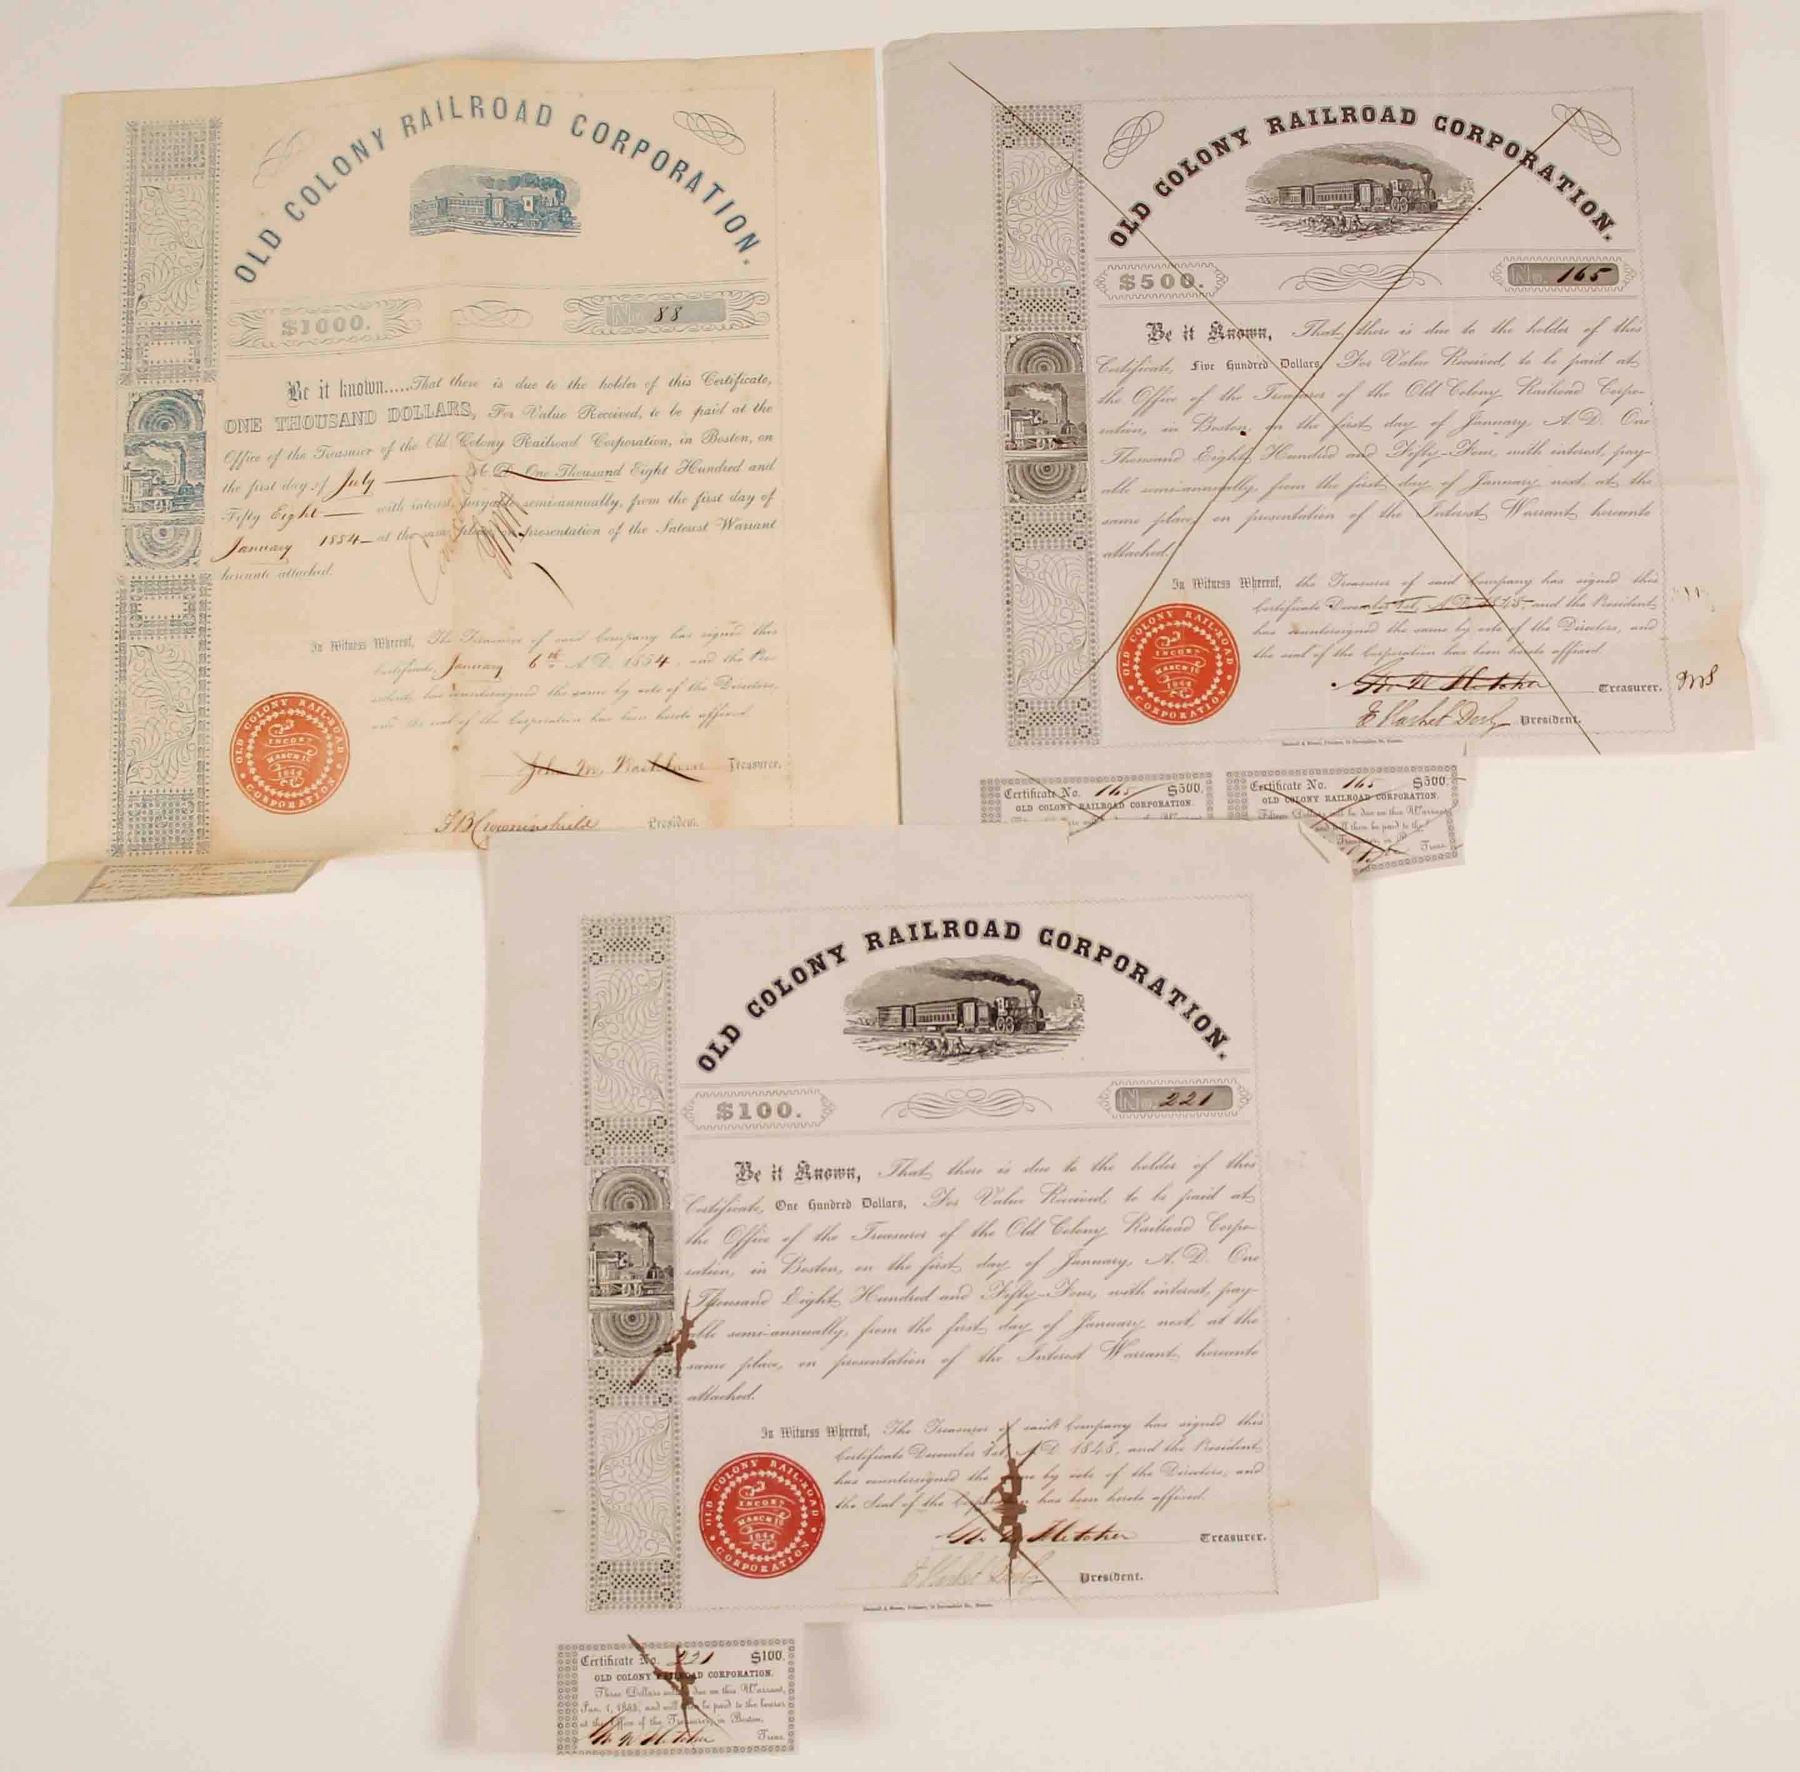 OLD COLONY RAILROAD CORPORATION.
$1000.
No. 88
Be it known.....That there is due to the holder of this Certificate,
ONE THOUSAND DOLLARS, For Value Received, to be paid at the
Office of the Treasurer of the Old Colony Railroad Corporation, in Boston, on
the first day of July A D. One Thousand Eight Hundred and
Fifty Eight with interest, payable semi-annually, from the first day of
January 1854 at the same place, on presentation of the Interest Warrant
hereunto attached.
In Witness Whereof, The Treasurer of said Company has signed this
Certificate, January 6th A.D. 1854, and the Pre-
sident, has countersigned the same by vote of the Directors,
and the seal of the Corporation has been hereto affixed.
OLD COLONY RAIL-ROAD CORPORATION
INCORP.
MARCH 16
1844
John M. Washburn Treasurer.
F B Crowninshield President.
OLD COLONY RAILROAD CORPORATION.
$500.
No. 165
Be it Known, That there is due to the holder of this
Certificate, Five Hundred Dollars, For Value Received, to be paid at
the Office of the Treasurer of the Old Colony Railroad Corpo-
ration, in Boston, on the first day of January, A. D. One
Thousand Eight Hundred and Fifty-Four, with interest, pay-
able semi-annually, from the first day of January next, at the
same place, on presentation of the Interest Warrant hereunto
attached.
In Witness Whereof, the Treasurer of said Company has signed this
Certificate December 1st, A.D. 1848, and the President
has countersigned the same by vote of the Directors, and
the seal of the Corporation has been hereto affixed.
OLD COLONY RAIL-ROAD CORPORATION
INCORP.
MARCH 16
1844
Treasurer.
E Hasket Derby President.
Certificate No. 165 $500.
OLD COLONY RAILROAD CORPORATION.
Certificate No. 165 $500.
OLD COLONY RAILROAD CORPORATION.
Fifteen Dollars will be due on this Warrant
and will then be paid to the
Treas.
OLD COLONY RAILROAD CORPORATION.
$100.
No. 221
Be it Known, That there is due to the holder of this
Certificate, One Hundred Dollars, For Value Received, to be paid at
the Office of the Treasurer of the Old Colony Railroad Corpo-
ration, in Boston, on the first day of January, A. D. One
Thousand Eight Hundred and Fifty-Four, with interest, pay-
able semi-annually, from the first day of January next, at the
same place, on presentation of the Interest Warrant hereunto
attached.
In Witness Whereof, The Treasurer of said Company has signed this
Certificate December 1st, A D 1848, and the President
has countersigned the same by vote of the Directors, and
the Seal of the Corporation has been hereto affixed.
OLD COLONY RAIL-ROAD CORPORATION
INCORP.
MARCH 16
1844
Fletcher Treasurer.
E Hasket Derby President.
Certificate No. 221 $100.
OLD COLONY RAILROAD CORPORATION.
Three Dollars will be due on this Warrant,
Jan. 1, and will then be paid to the bearer
at the Office of the Treasurer, in Boston.
Fletcher Treas.